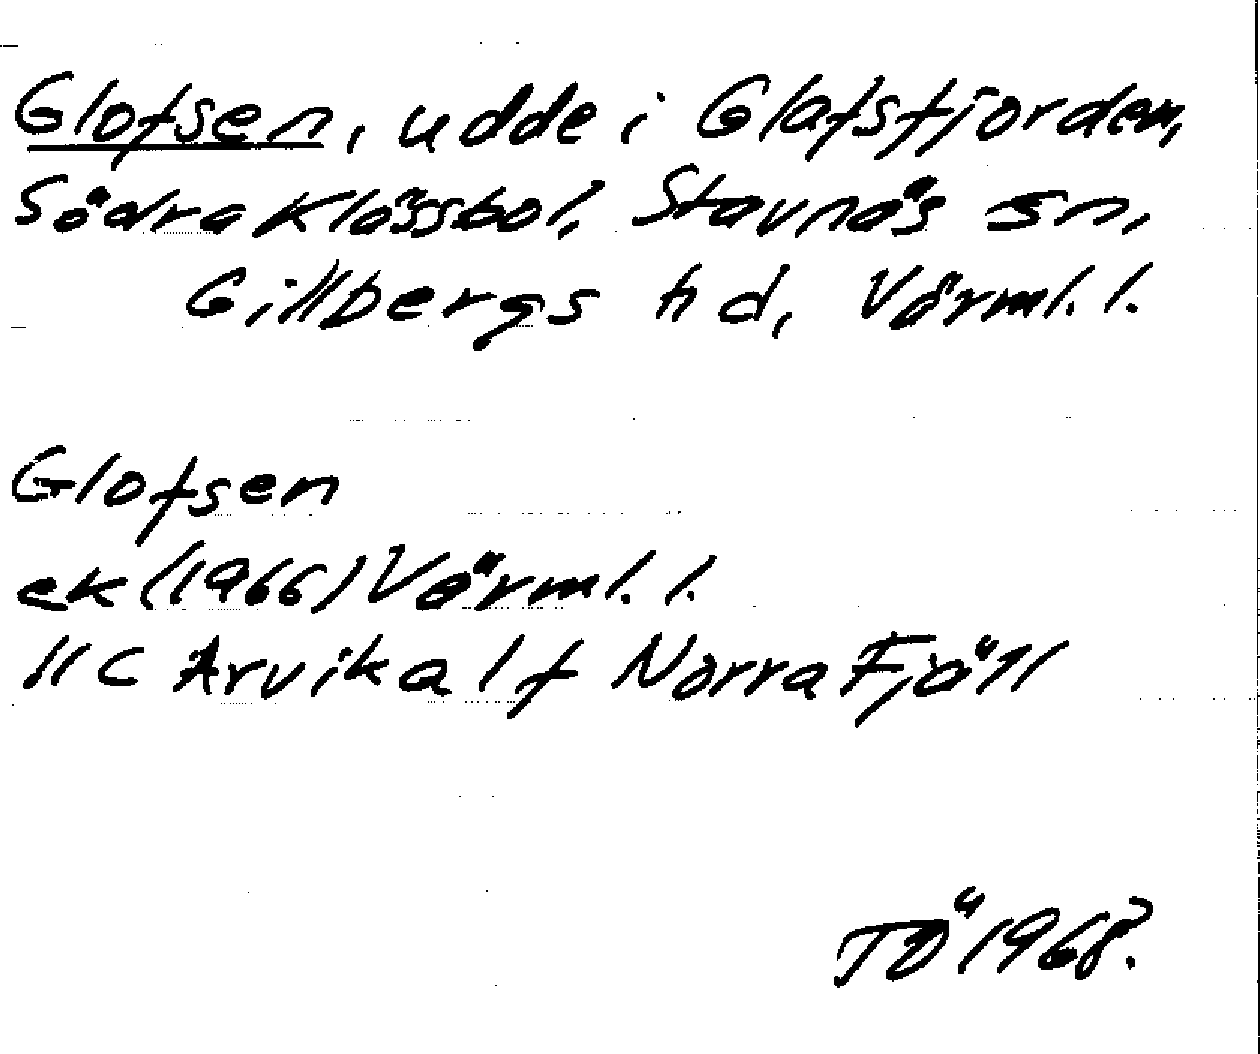 Glofsen, udde i Glafsfjorden,
Södra Klässbol, Stavnäs sn,
Gillbergs hd, Värml. l.
Glofsen
ek (1966) Värml. l.
11C Arvika 1f Norra Fjöll
TÖ 1968.